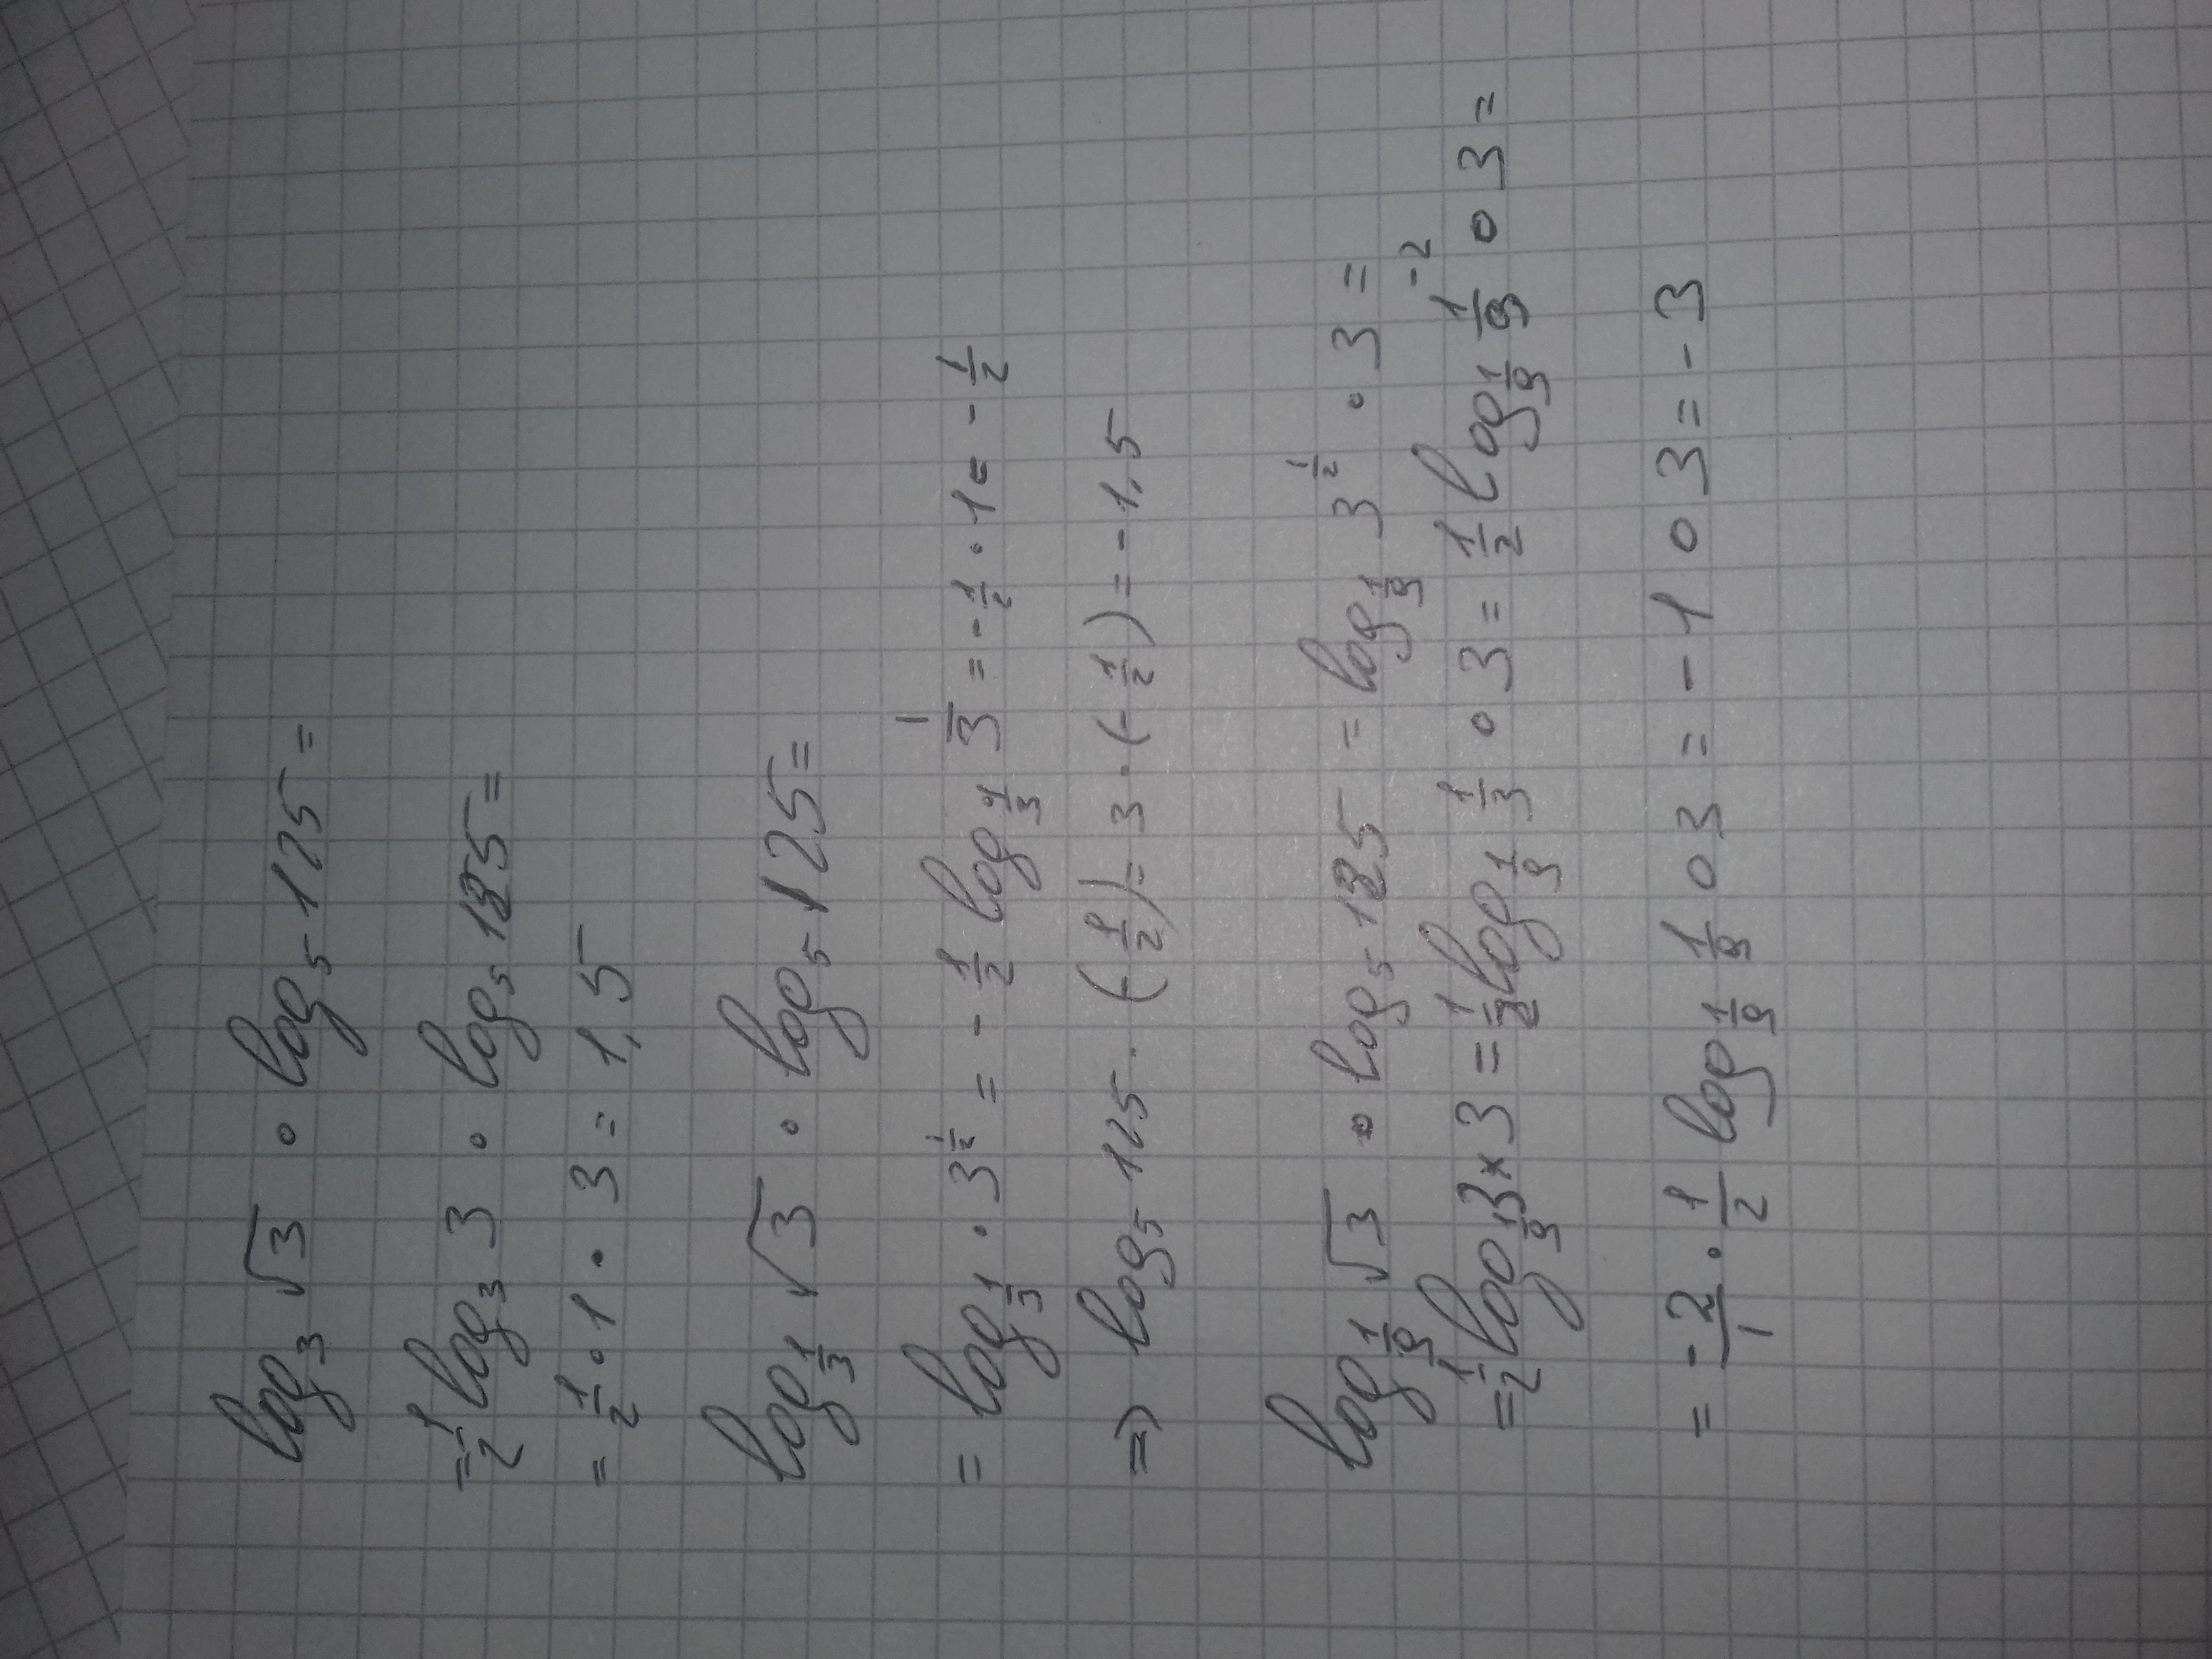 log₃ √3 · log₅ 125 =
= 1/2 log₃ 3 · log₅ 125 =
= 1/2 · 1 · 3 = 1,5
log_{1/3} √3 · log₅ 125 =
= log_{1/3} · 3^{1/2} = - 1/2 log_{1/3} 1/3 = - 1/2 · 1 = - 1/2
⇒ log₅ 125 · (- 1/2) = 3 · (- 1/2) = - 1,5
log_{1/9} √3 · log₅ 125 = log_{1/9} 3^{1/2} · 3 =
= 1/2 log_{1/9} 3 × 3 = 1/2 log_{1/9} 1/3 · 3 = 1/2 log_{1/9} 1/9^{-2} · 3 =
= - 2/1 · 1/2 log_{1/9} 1/9 · 3 = - 1 · 3 = - 3